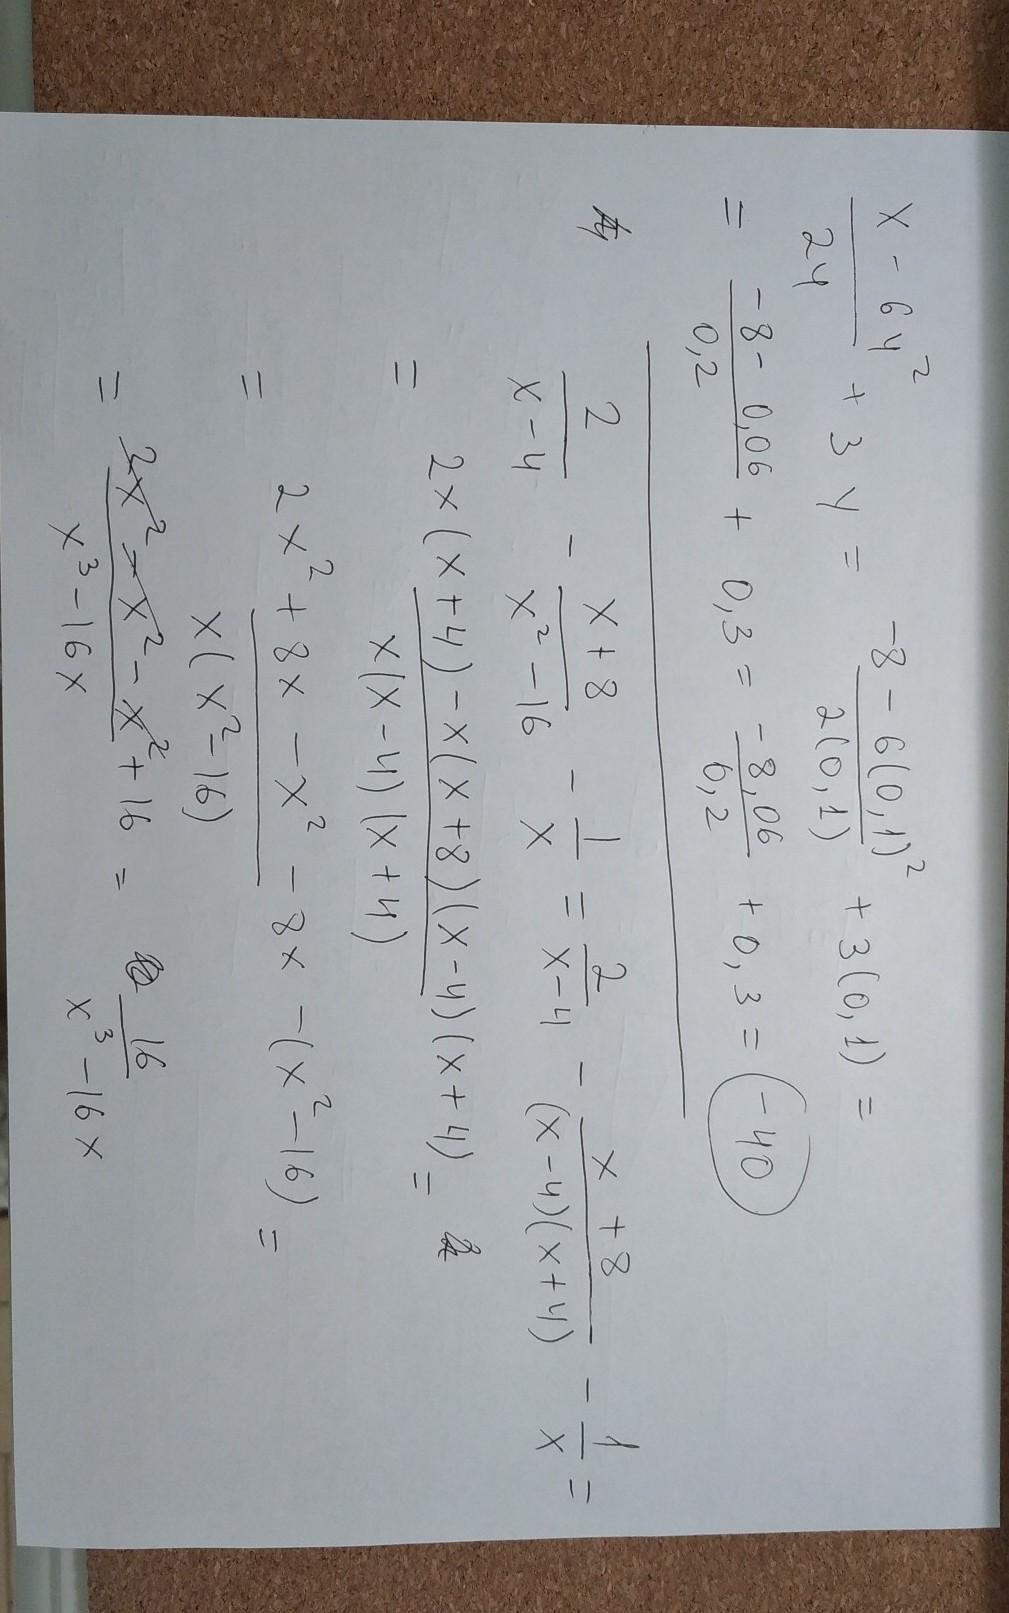 x - 6y² / 2y + 3y = -8 - 6(0,1)² / 2(0,1) + 3(0,1) =
= -8 - 0,06 / 0,2 + 0,3 = -8,06 / 0,2 + 0,3 = -40
2 / x-4 - x+8 / x²-16 - 1 / x = 2 / x-4 - x+8 / (x-4)(x+4) - 1 / x =
= 2x(x+4) - x(x+8)(x-4)(x+4) / x(x-4)(x+4) =
= 2x² + 8x - x² - 8x - (x²-16) / x(x²-16) =
= 2x² - x² - x² + 16 / x³ - 16x = 16 / x³ - 16x